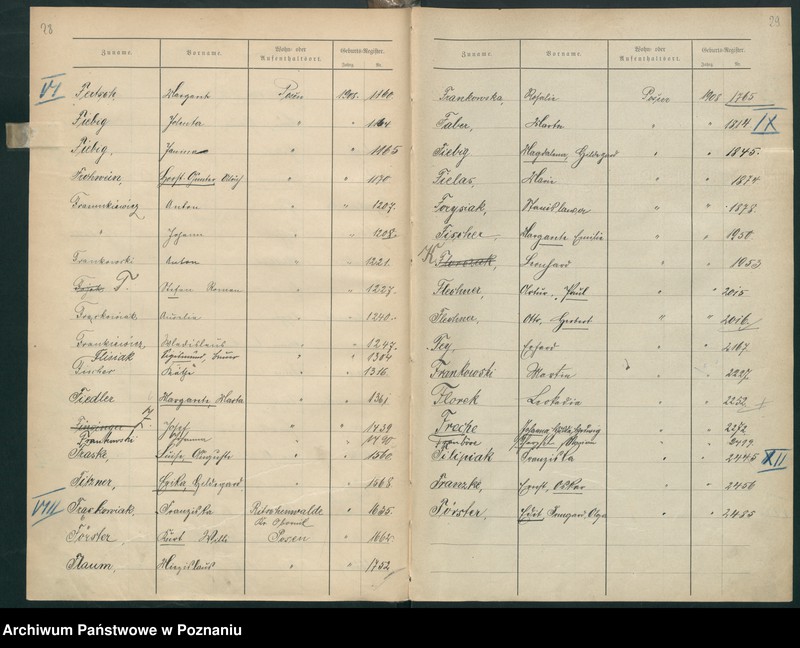 28
Zuname. Vorname. Wohn- oder Aufenthaltsort. Geburts-Register.
Jahrg. Nr.
VI
Margarete Posen 1908. 1160
Fiebig Jolanta " " 1164
Fiebig, Janina " " 1165
Horst Günter Ulrich " " 1170
Franckiewicz Anton " " 1207.
" Johann " " 1208.
Frankowski Anton " " 1221.
F. Stefan Roman " " 1227.
Aurelia " " 1240.
Frankiewicz, Wladislaus " " 1247.
Flisiak " " 1304
Fischer Käthe " " 1316.
Fiedler Margarete, Marta " " 1361
Z Josef " " 1439
Frankowski Johanna " 1490
Frask, Luise, Auguste " " 1560.
Fitzner, Erika Hildegard " " 1568
VIII
Frąckowiak, Franziska Ritschenwalde " 1635
Kr. Obornik
Förster, Kurt Willi Posen " 1662
Flaum, " " 1752
29
Zuname. Vorname. Wohn- oder Aufenthaltsort. Geburts-Register.
Jahrg. Nr.
Frankowska, Rosalie Posen 1908 1765
Faber, Marta " " 1814 IX
Fiebig Magdalena, Hildegard " " 1845.
Fielas, Marie " " 1874
Forysiak, Stanislawa " " 1878
Fischer, Margarete Emilie " " 1950.
K Leonhard " 1953
Flechner, Artur, Paul " " 2015
Flechner, Otto, Herbert " " 2016
Feg, Erhard " " 2167.
Frankowski Martin " " 2227.
Florek Leokadia " " 2252
Freche " " 2272
Filipiak Franziska " " 2445 XII
Franzke, Ernst, Oskar " " 2456
Förster, Edit Irmgard, Olga " " 2485
Archiwum Państwowe w Poznaniu